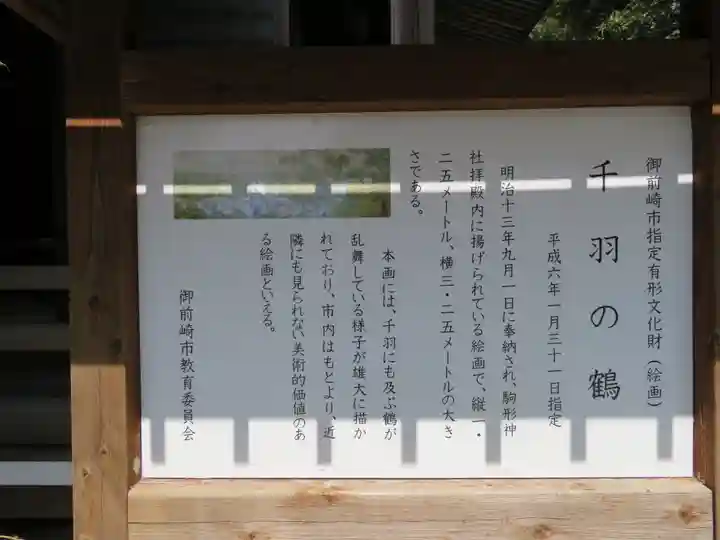 御前崎市指定有形文化財（絵画）
千羽の鶴
平成六年一月三十一日指定
明治十三年九月一日に奉納され、駒形神
社拝殿内に揚げられている絵画で、縦一・
二五メートル、横三・二五メートルの大き
さである。
本画には、千羽にも及ぶ鶴が
乱舞している様子が雄大に描か
れており、市内はもとより、近
隣にも見られない美術的価値のあ
る絵画といえる。
御前崎市教育委員会